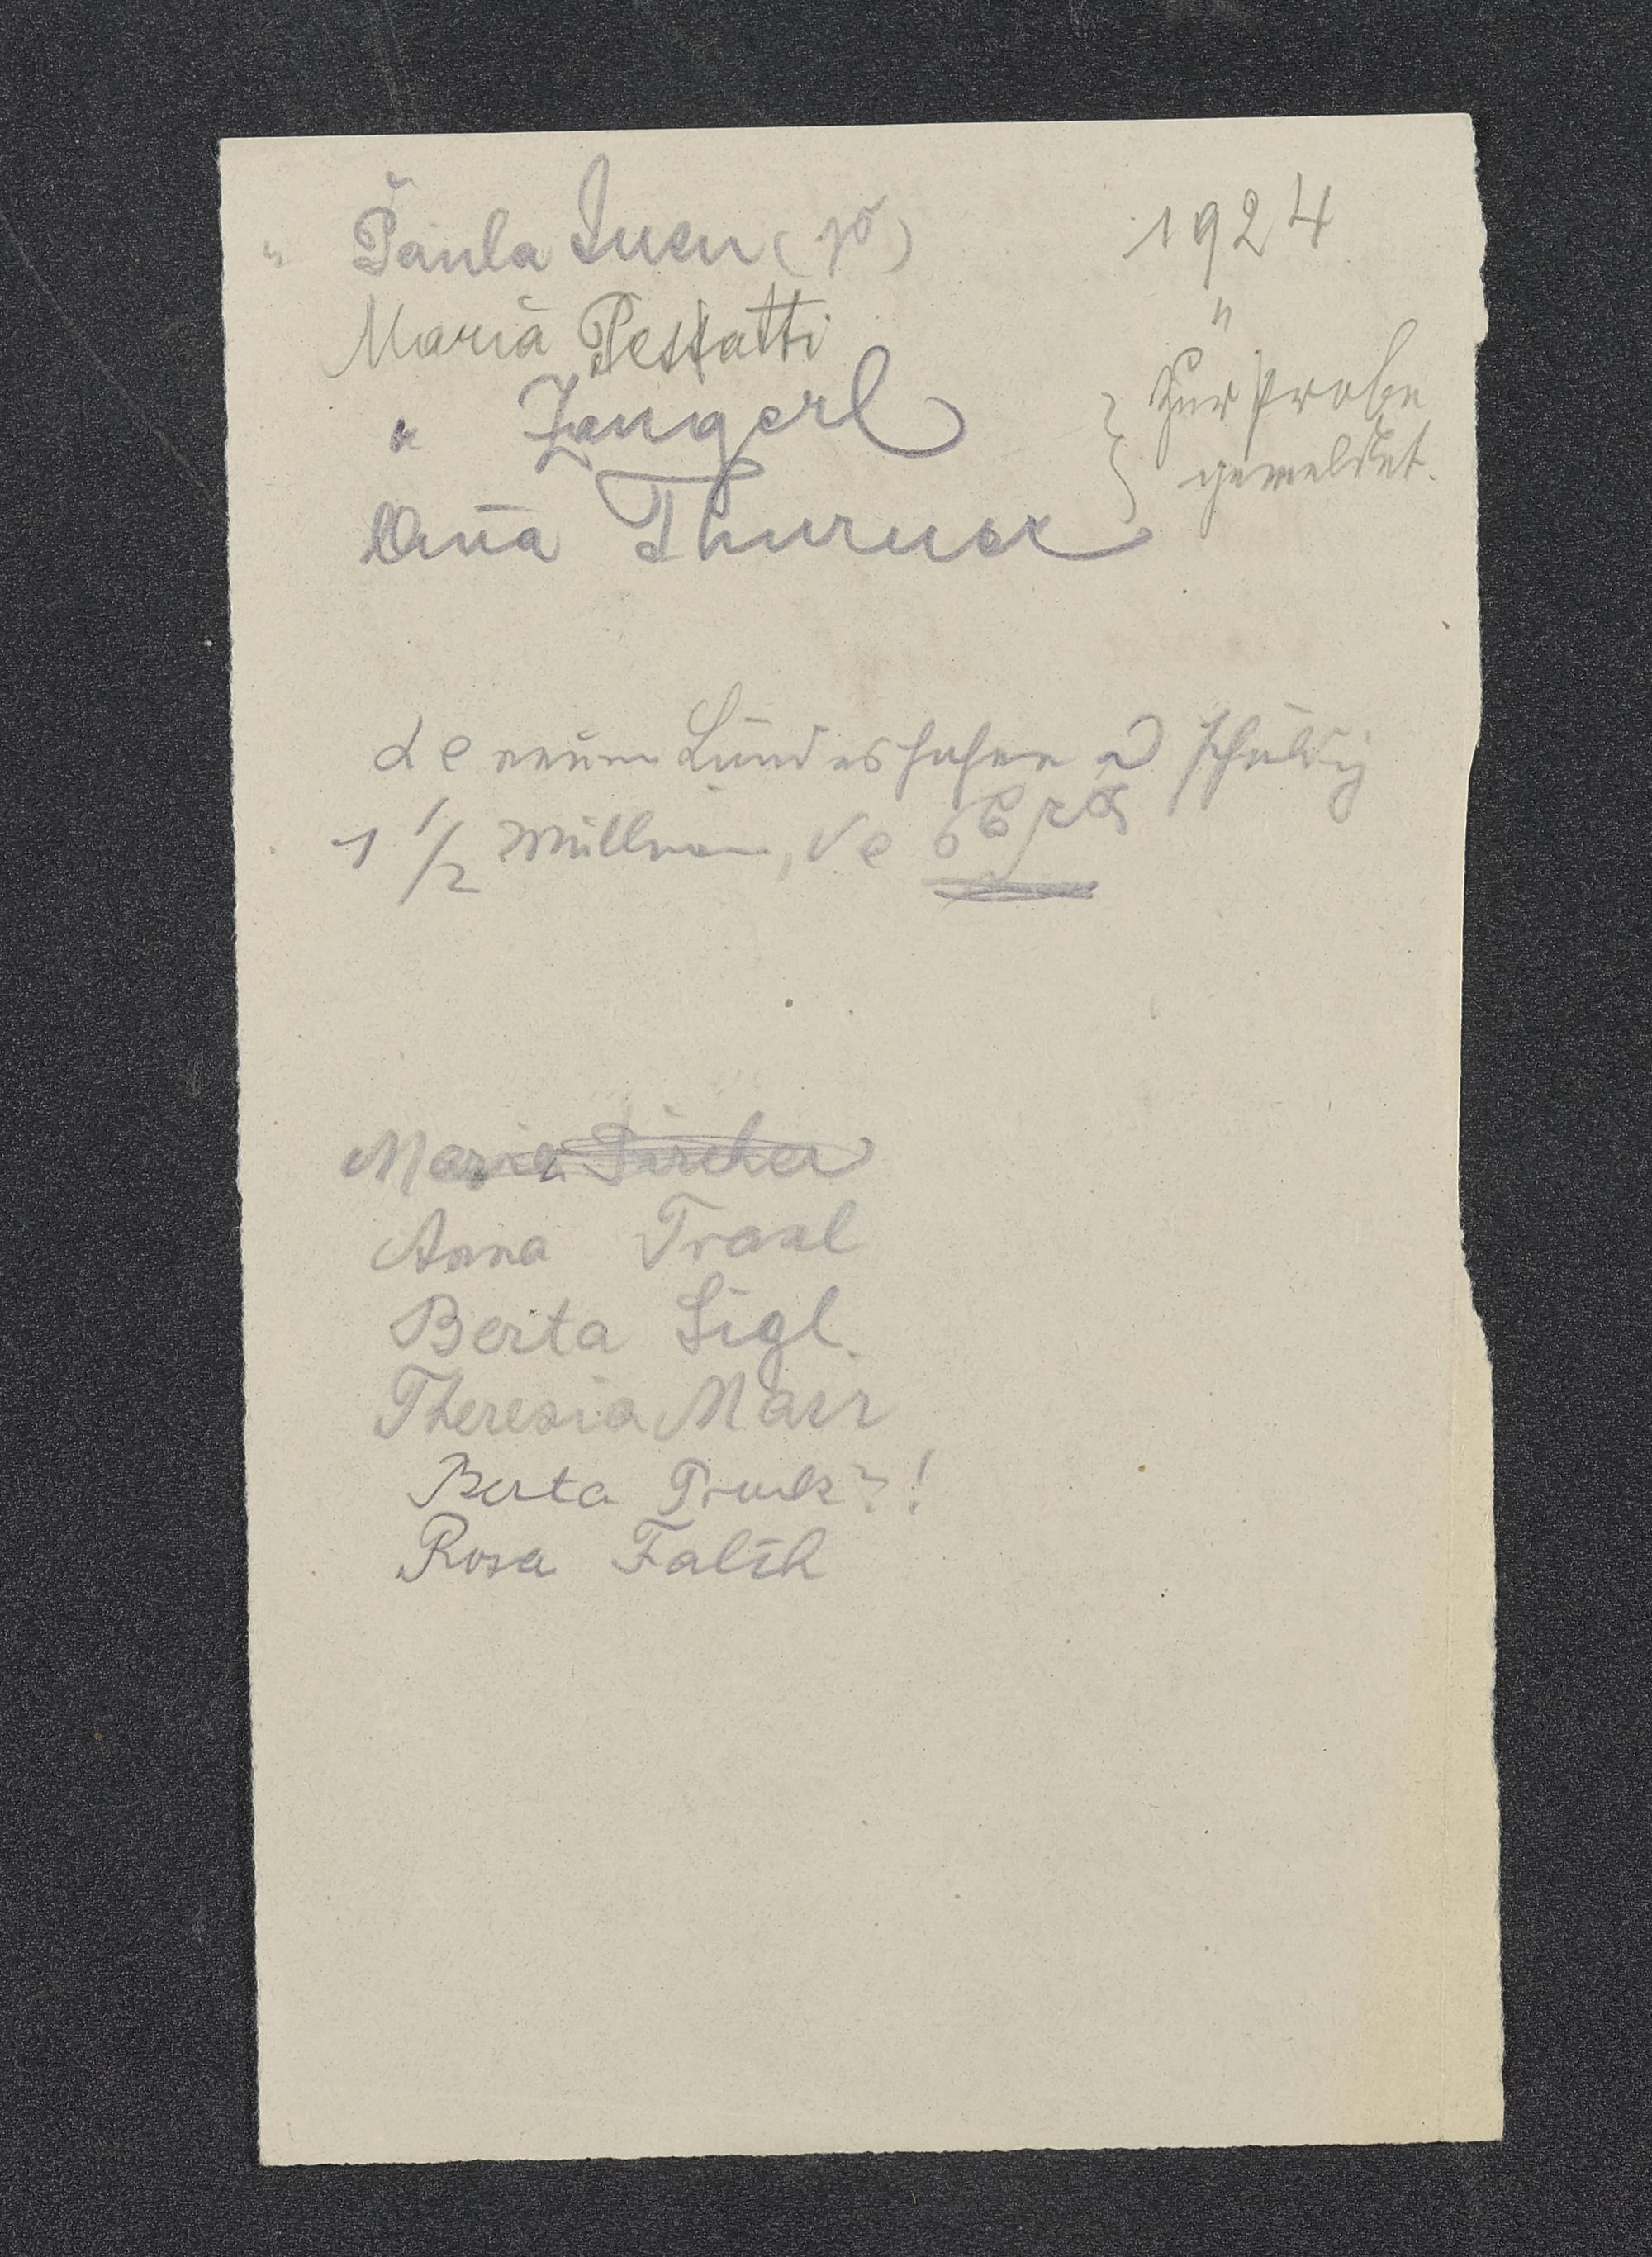 " Paula Juen ( ) 1924
Maria Pessatti "
" Zangerl } Zur Probe
gemeldet.
Anna Thurner
schuldig
1 1/2 Million,
Maria Pircher
Anna Traxl
Berta Sigl.
Theresia Mair
Berta ?!
Rosa Falch